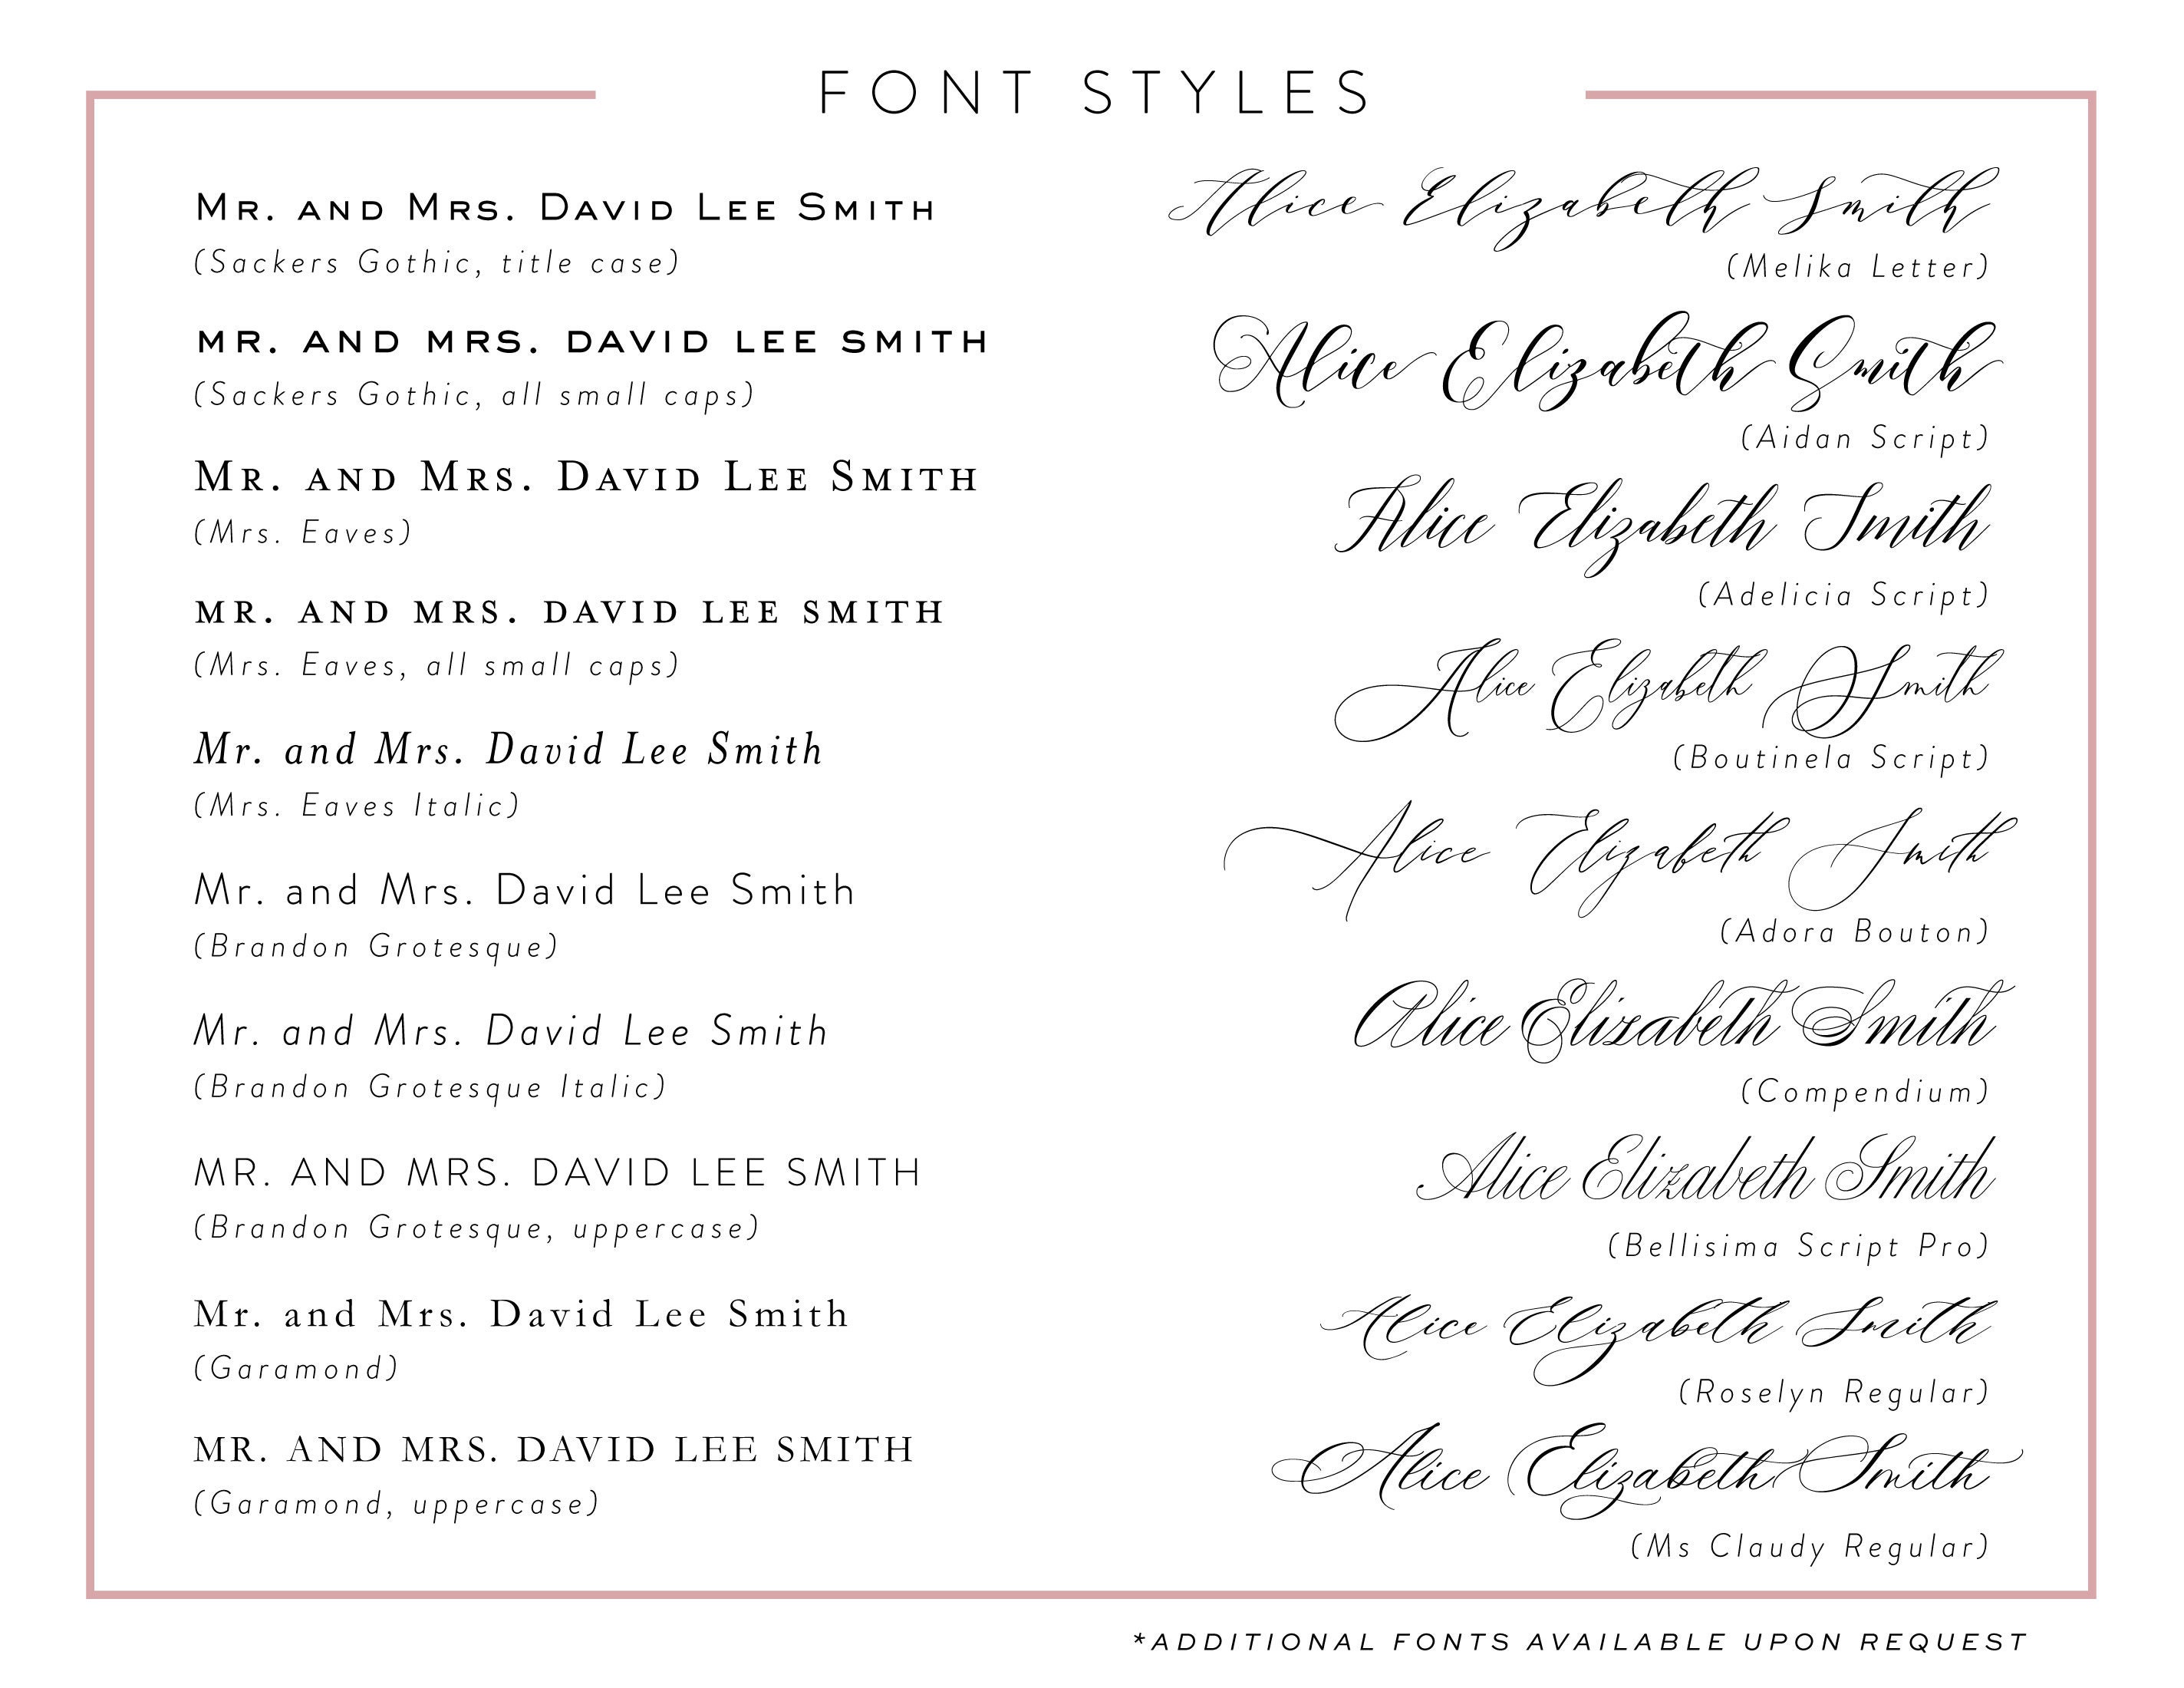 FONT STYLES
Mr. and Mrs. David Lee Smith
(Sackers Gothic, title case)
MR. AND MRS. DAVID LEE SMITH
(Sackers Gothic, all small caps)
Mr. and Mrs. David Lee Smith
(Mrs. Eaves)
MR. AND MRS. DAVID LEE SMITH
(Mrs. Eaves, all small caps)
Mr. and Mrs. David Lee Smith
(Mrs. Eaves Italic)
Mr. and Mrs. David Lee Smith
(Brandon Grotesque)
Mr. and Mrs. David Lee Smith
(Brandon Grotesque Italic)
MR. AND MRS. DAVID LEE SMITH
(Brandon Grotesque, uppercase)
Mr. and Mrs. David Lee Smith
(Garamond)
MR. AND MRS. DAVID LEE SMITH
(Garamond, uppercase)
Alice Elizabeth Smith
(Melika Letter)
Alice Elizabeth Smith
(Aidan Script)
Alice Elizabeth Smith
(Adelicia Script)
Alice Elizabeth Smith
(Boutinela Script)
Alice Elizabeth Smith
(Adora Bouton)
Alice Elizabeth Smith
(Compendium)
Alice Elizabeth Smith
(Bellisima Script Pro)
Alice Elizabeth Smith
(Roselyn Regular)
Alice Elizabeth Smith
(Ms Claudy Regular)
*ADDITIONAL FONTS AVAILABLE UPON REQUEST